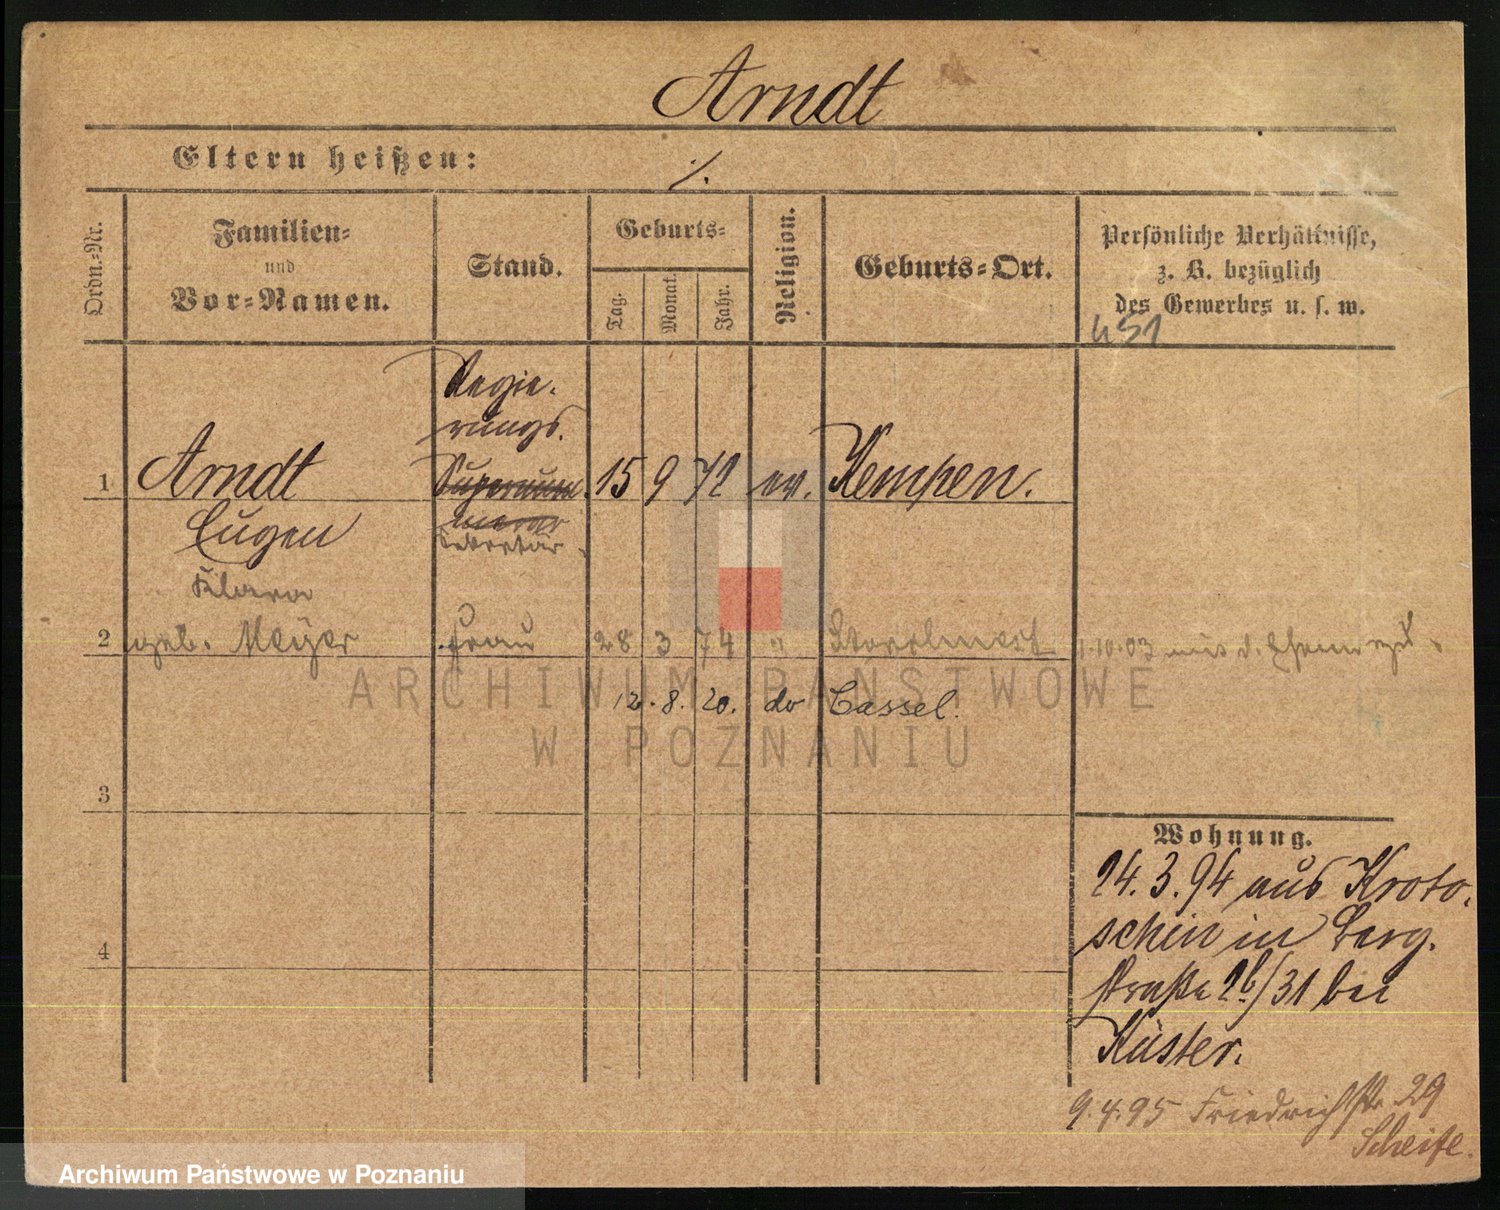 Arndt
Eltern heißen: ./.
Ordn.-Nr.
Familien-
und
Vor-Namen.
Stand.
Geburts-
Tag.
Monat.
Jahr.
Religion.
Geburts-Ort.
Persönliche Verhältnisse,
z. B. bezüglich
des Gewerbes u. s. w.
451
Regie-
rungs-
1 Arndt Supernum 15 9 72 ev. Kempen.
Eugen merar
Sekretär
Klara
2 geb. Meyer Frau 28 3 74 " 1.10.03 aus d.
12. 8. 20. do Cassel.
3
4
Wohnung.
24.3.94 aus Kroto-
schin in Berg-
straße 2b/31 bei
Küster.
9.4.95 Friedrichstr 29
Scheife.
ARCHIWUM PAŃSTWOWE
W POZNANIU
Archiwum Państwowe w Poznaniu